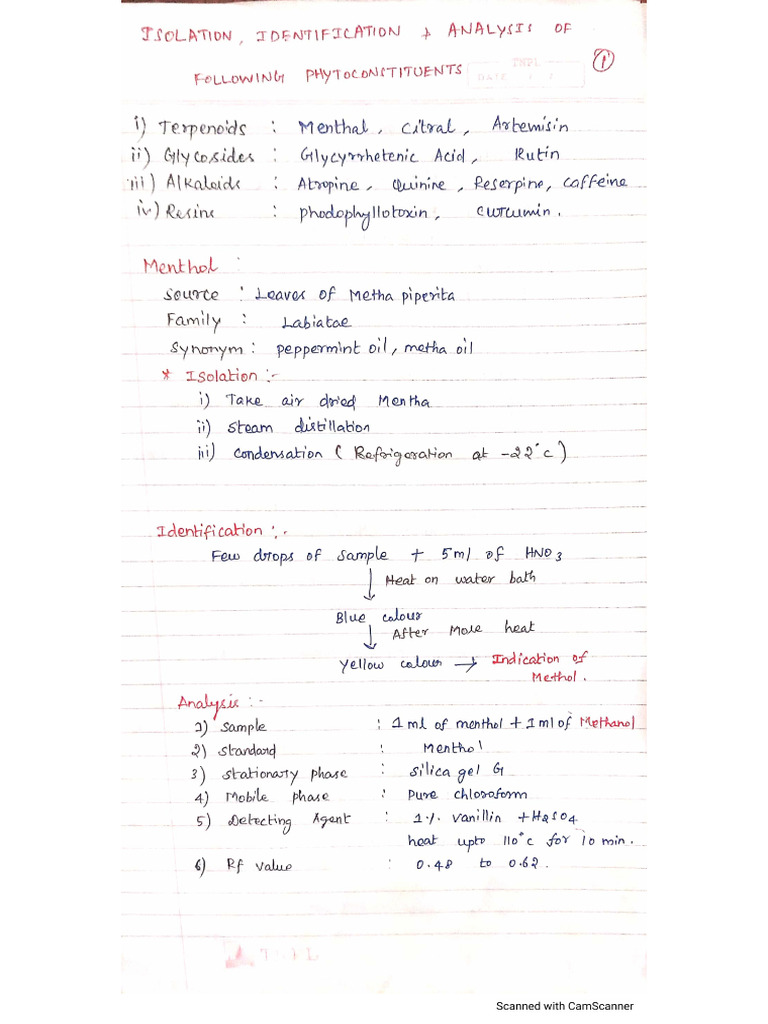 ISOLATION, IDENTIFICATION & ANALYSIS OF
FOLLOWING PHYTOCONSTITUENTS
①
DATE
i) Terpenoids : Menthal, Citral, Artemisin
ii) Glycosides : Glycyrrhetenic Acid, Rutin
iii) Alkaloids : Atropine, Quinine, Reserpine, Caffeine
iv) Resins : phodophyllotoxin, curcumin.
Menthol :
Source : Leaves of Metha piperita
Family : Labiatae
Synonym : peppermint oil, metha oil
* Isolation :-
i) Take air dried Mentha
ii) Steam distillation
iii) Condensation ( Refrigeration at -22°c )
Identification :-
Few drops of sample + 5ml of HNO3
↓ Heat on water bath
Blue colour
↓ After More heat
Yellow colour → Indication of
Methol.
Analysis :-
1) Sample : 1 ml of menthol + 1ml of Methanol
2) Standard : Menthol
3) Stationary phase : silica gel G
4) Mobile phase : Pure chloroform
5) Detecting Agent : 1% vanillin + H2SO4
heat upto 110°c for 10 min.
6) Rf value : 0.48 to 0.62.
Scanned with CamScanner